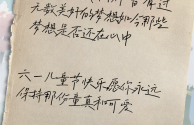 无数美好的梦想如今那些
梦想是否还在心中
六一儿童节快乐愿你永远
保持那份童真和可爱